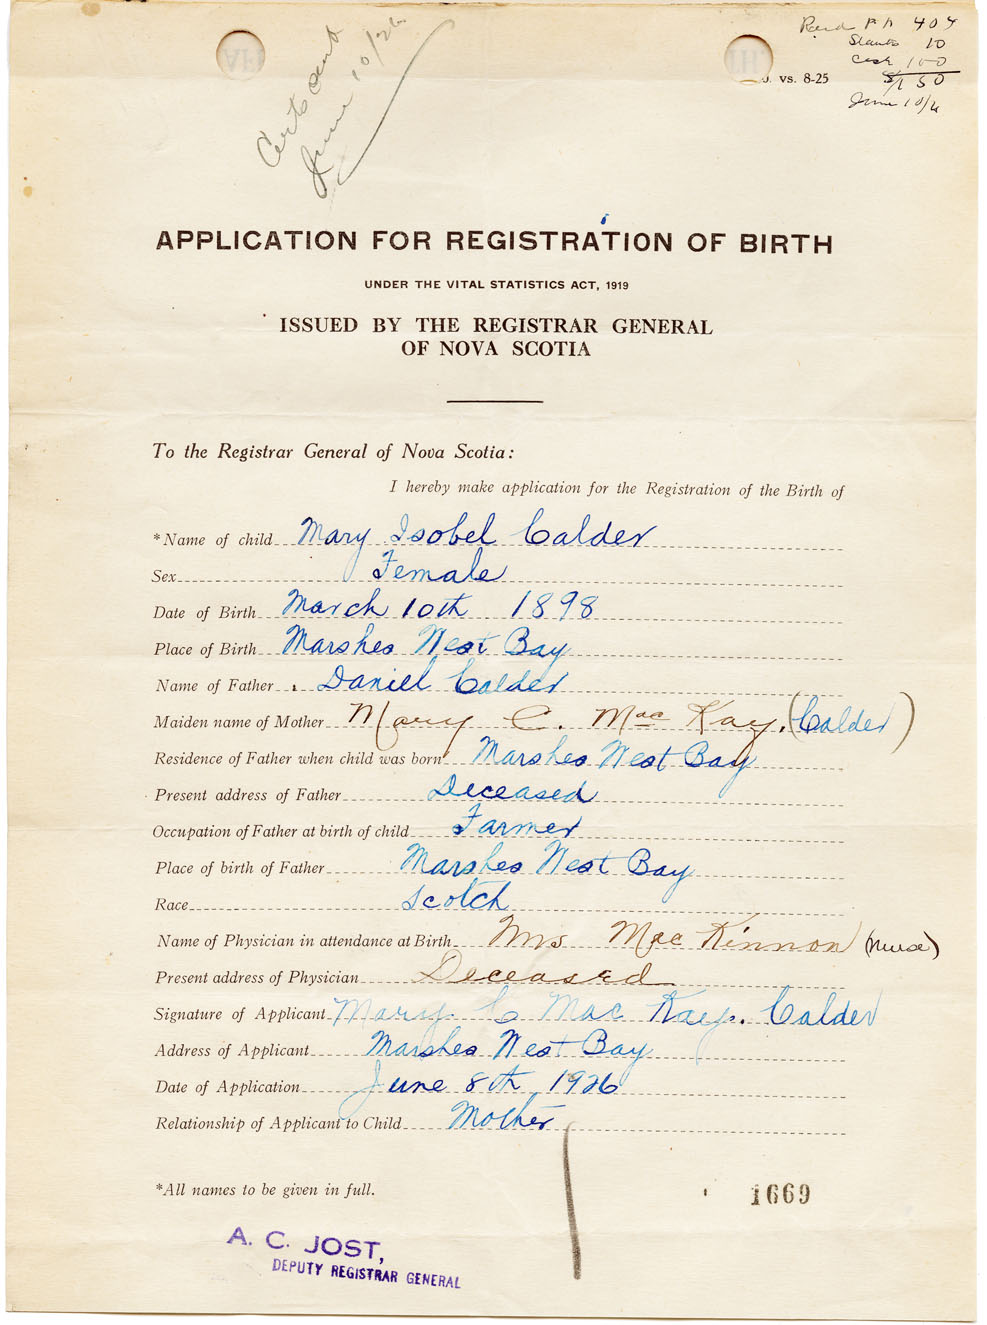 Certs and
June 10/26
Recd PN 404
Stamps 10
Cash 100
$1 50
June 10/26
vs. 8-25
APPLICATION FOR REGISTRATION OF BIRTH
UNDER THE VITAL STATISTICS ACT, 1919
ISSUED BY THE REGISTRAR GENERAL
OF NOVA SCOTIA
To the Registrar General of Nova Scotia:
I hereby make application for the Registration of the Birth of
*Name of child Mary Isobel Calder
Sex Female
Date of Birth March 10th 1898
Place of Birth Marshes West Bay
Name of Father Daniel Calder
Maiden name of Mother Mary C. MacKay. (Calder)
Residence of Father when child was born Marshes West Bay
Present address of Father Deceased
Occupation of Father at birth of child Farmer
Place of birth of Father Marshes West Bay
Race Scotch
Name of Physician in attendance at Birth Mrs MacKinnon (Nurse)
Present address of Physician Deceased
Signature of Applicant Mary C MacKay. Calder
Address of Applicant Marshes West Bay
Date of Application June 8th 1926
Relationship of Applicant to Child Mother
*All names to be given in full.
1669
A. C. JOST,
DEPUTY REGISTRAR GENERAL